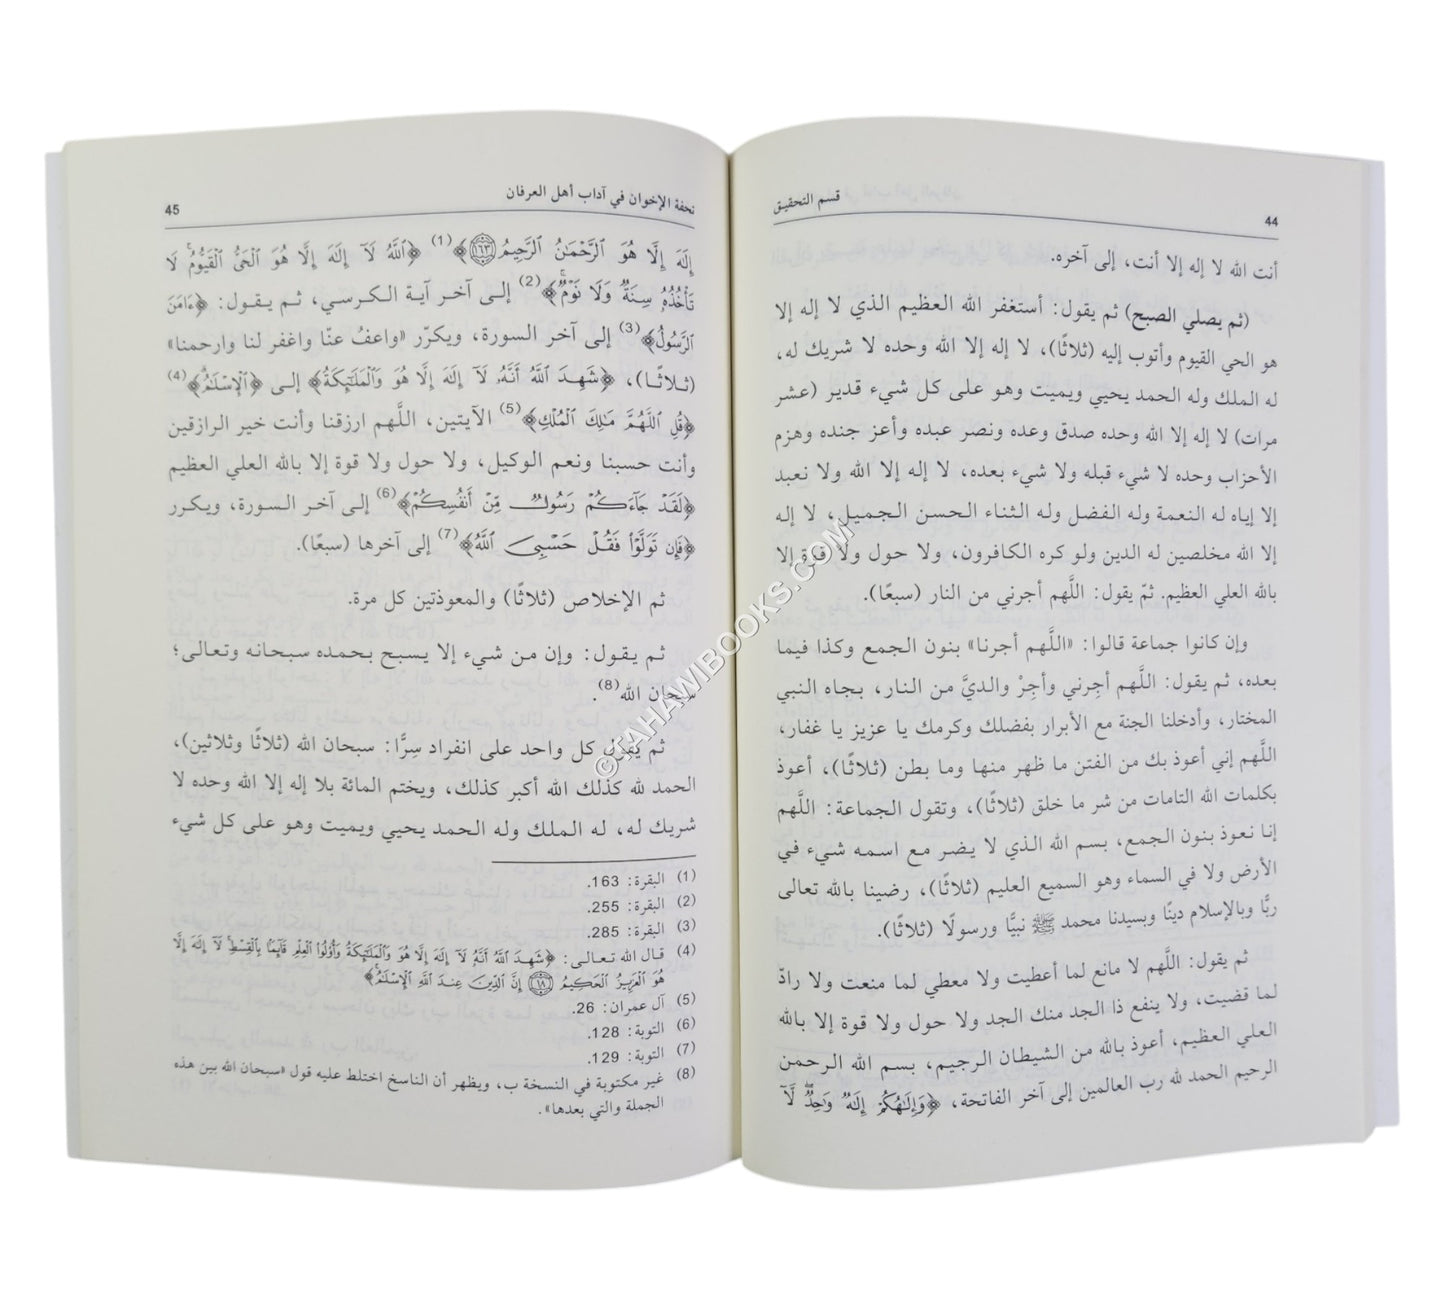 44
قسم التحقيق
أنت الله لا إله إلا أنت، إلى آخره.
(ثم يصلي الصبح) ثم يقول: أستغفر الله العظيم الذي لا إله إلا
هو الحي القيوم وأتوب إليه (ثلاثًا)، لا إله إلا الله وحده لا شريك له،
له الملك وله الحمد يحيي ويميت وهو على كل شيء قدير (عشر
مرات) لا إله إلا الله وحده صدق وعده ونصر عبده وأعز جنده وهزم
الأحزاب وحده لا شيء قبله ولا شيء بعده، لا إله إلا الله ولا نعبد
إلا إياه له النعمة وله الفضل وله الثناء الحسن الجميل، لا إله
إلا الله مخلصين له الدين ولو كره الكافرون، ولا حول ولا قوة إلا
بالله العلي العظيم. ثمّ يقول: اللَّهم أجرني من النار (سبعًا).
وإن كانوا جماعة قالوا: «اللَّهم أجرنا» بنون الجمع وكذا فيما
بعده، ثم يقول: اللَّهم أجِرني وأجِرْ والديَّ من النار، بجاه النبي
المختار، وأدخلنا الجنة مع الأبرار بفضلك وكرمك يا عزيز يا غفار،
اللَّهم إني أعوذ بك من الفتن ما ظهر منها وما بطن (ثلاثًا)، أعوذ
بكلمات الله التامات من شر ما خلق (ثلاثًا)، وتقول الجماعة: اللَّهم
إنا نعوذ بنون الجمع، بسم الله الذي لا يضر مع اسمه شيء في
الأرض ولا في السماء وهو السميع العليم (ثلاثًا)، رضينا بالله تعالى
ربًّا وبالإسلام دينًا وبسيدنا محمد ﷺ نبيًّا ورسولًا (ثلاثًا).
ثم يقول: اللَّهم لا مانع لما أعطيت ولا معطي لما منعت ولا رادّ
لما قضيت، ولا ينفع ذا الجد منك الجد ولا حول ولا قوة إلا بالله
العلي العظيم، أعوذ بالله من الشيطان الرجيم، بسم الله الرحمن
الرحيم الحمد لله رب العالمين إلى آخر الفاتحة، ﴿وَإِلَٰهُكُمْ إِلَٰهٌ وَٰحِدٌ لَّآ
تحفة الإخوان في آداب أهل العرفان
45
إِلَٰهَ إِلَّا هُوَ ٱلرَّحْمَٰنُ ٱلرَّحِيمُ ١٦٣﴾(1) ﴿ٱللَّهُ لَآ إِلَٰهَ إِلَّا هُوَ ٱلْحَىُّ ٱلْقَيُّومُ لَا
تَأْخُذُهُۥ سِنَةٌ وَلَا نَوْمٌ﴾(2) إلى آخر آية الكرسي، ثم يقول: ﴿ءَامَنَ
ٱلرَّسُولُ﴾(3) إلى آخر السورة، ويكرّر «واعفُ عنّا واغفر لنا وارحمنا»
(ثلاثًا)، ﴿شَهِدَ ٱللَّهُ أَنَّهُۥ لَآ إِلَٰهَ إِلَّا هُوَ وَٱلْمَلَٰٓئِكَةُ﴾ إلى ﴿ٱلْإِسْلَٰمُ﴾(4)
﴿قُلِ ٱللَّهُمَّ مَٰلِكَ ٱلْمُلْكِ﴾(5) الآيتين، اللَّهم ارزقنا وأنت خير الرازقين
وأنت حسبنا ونعم الوكيل، ولا حول ولا قوة إلا بالله العلي العظيم
﴿لَقَدْ جَآءَكُمْ رَسُولٌ مِّنْ أَنفُسِكُمْ﴾(6) إلى آخر السورة، ويكرر
﴿فَإِن تَوَلَّوْا۟ فَقُلْ حَسْبِىَ ٱللَّهُ﴾(7) إلى آخرها (سبعًا).
ثم الإخلاص (ثلاثًا) والمعوذتين كل مرة.
ثم يقول: وإن من شيء إلا يسبح بحمده سبحانه وتعالى؛
سبحان الله(8).
ثم يقول كل واحد على انفراد سِرًّا: سبحان الله (ثلاثًا وثلاثين)،
الحمد لله كذلك الله أكبر كذلك، ويختم المائة بلا إله إلا الله وحده لا
شريك له، له الملك وله الحمد يحيي ويميت وهو على كل شيء
(1) البقرة: 163.
(2) البقرة: 255.
(3) البقرة: 285.
(4) قال الله تعالى: ﴿شَهِدَ ٱللَّهُ أَنَّهُۥ لَآ إِلَٰهَ إِلَّا هُوَ وَٱلْمَلَٰٓئِكَةُ وَأُو۟لُوا۟ ٱلْعِلْمِ قَآئِمًۢا بِٱلْقِسْطِ لَآ إِلَٰهَ إِلَّا
هُوَ ٱلْعَزِيزُ ٱلْحَكِيمُ ١٨ إِنَّ ٱلدِّينَ عِندَ ٱللَّهِ ٱلْإِسْلَٰمُ﴾
(5) آل عمران: 26.
(6) التوبة: 128.
(7) التوبة: 129.
(8) غير مكتوبة في النسخة ب، ويظهر أن الناسخ اختلط عليه قول «سبحان الله بين هذه
الجملة والتي بعدها».
©TAHAWIBOOKS.COM